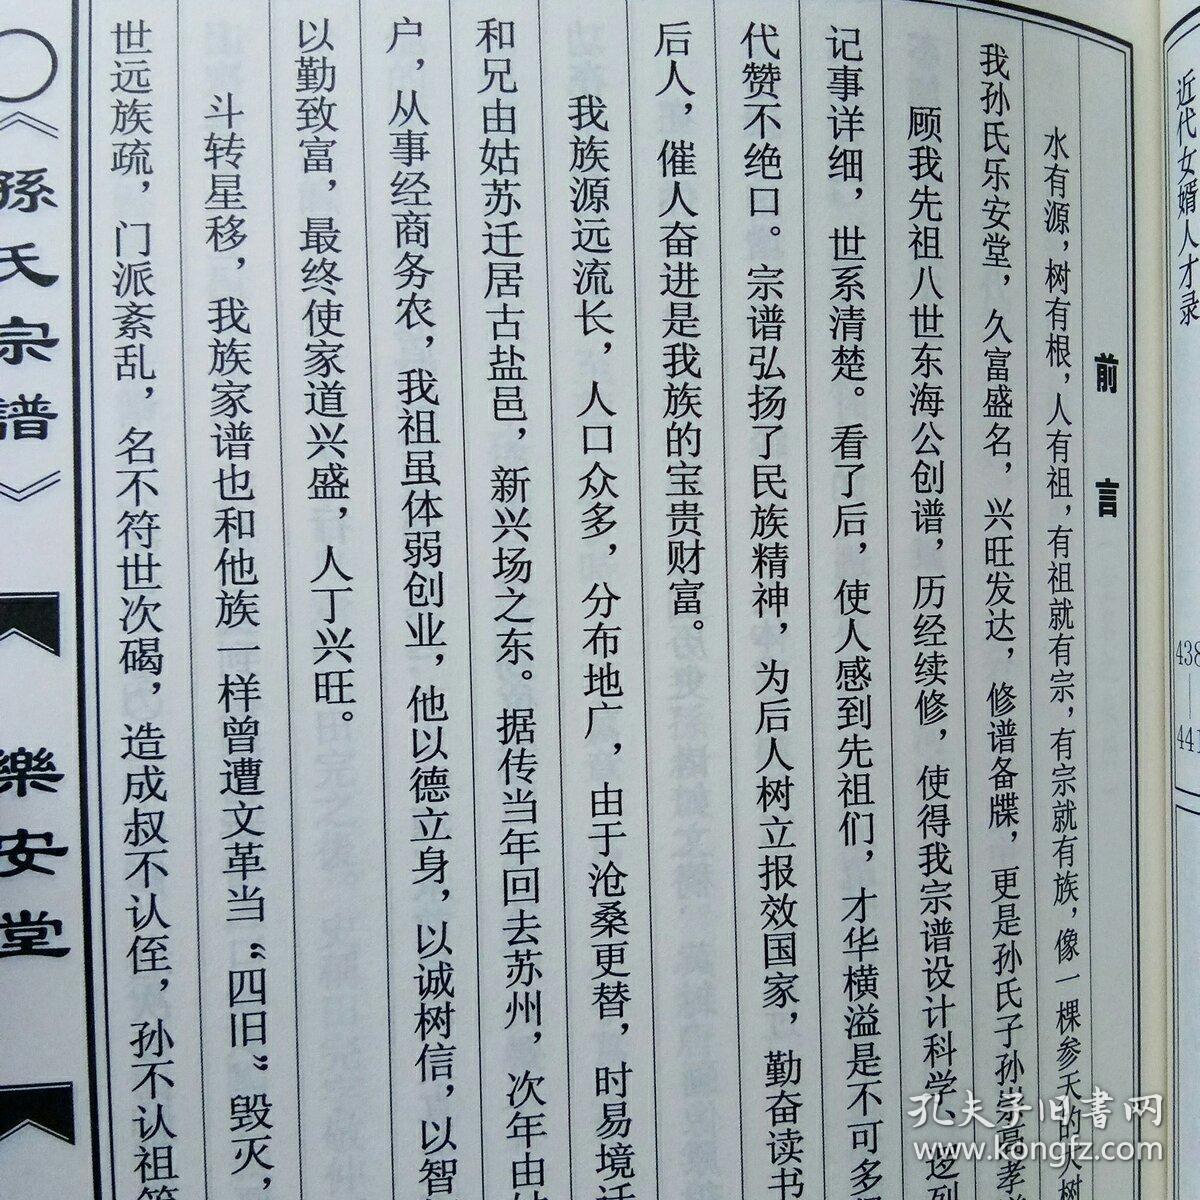 近代女婿人才录
438—441
前言
水有源，树有根，人有祖，有祖就有宗，有宗就有族，像一棵参天的大树
我孙氏乐安堂，久富盛名，兴旺发达，修谱备牒，更是孙氏子孙崇高孝
顾我先祖八世东海公创谱，历经续修，使得我宗谱设计科学、迻列
记事详细，世系清楚。看了后，使人感到先祖们，才华横溢是不可多
代赞不绝口。宗谱弘扬了民族精神，为后人树立报效国家，勤奋读书
后人，催人奋进是我族的宝贵财富。
我族源远流长，人口众多，分布地广，由于沧桑更替，时易境迁
和兄由姑苏迁居古盐邑，新兴场之东。据传当年回去苏州，次年由
户，从事经商务农，我祖虽体弱创业，他以德立身，以诚树信，以智
以勤致富，最终使家道兴盛，人丁兴旺。
斗转星移，我族家谱也和他族一样曾遭文革当“四旧”毁灭，
世远族疏，门派紊乱，名不符世次碣，造成叔不认侄，孙不认祖
《孫氏宗譜》
樂安堂
孔夫子旧书网
www.kongfz.com